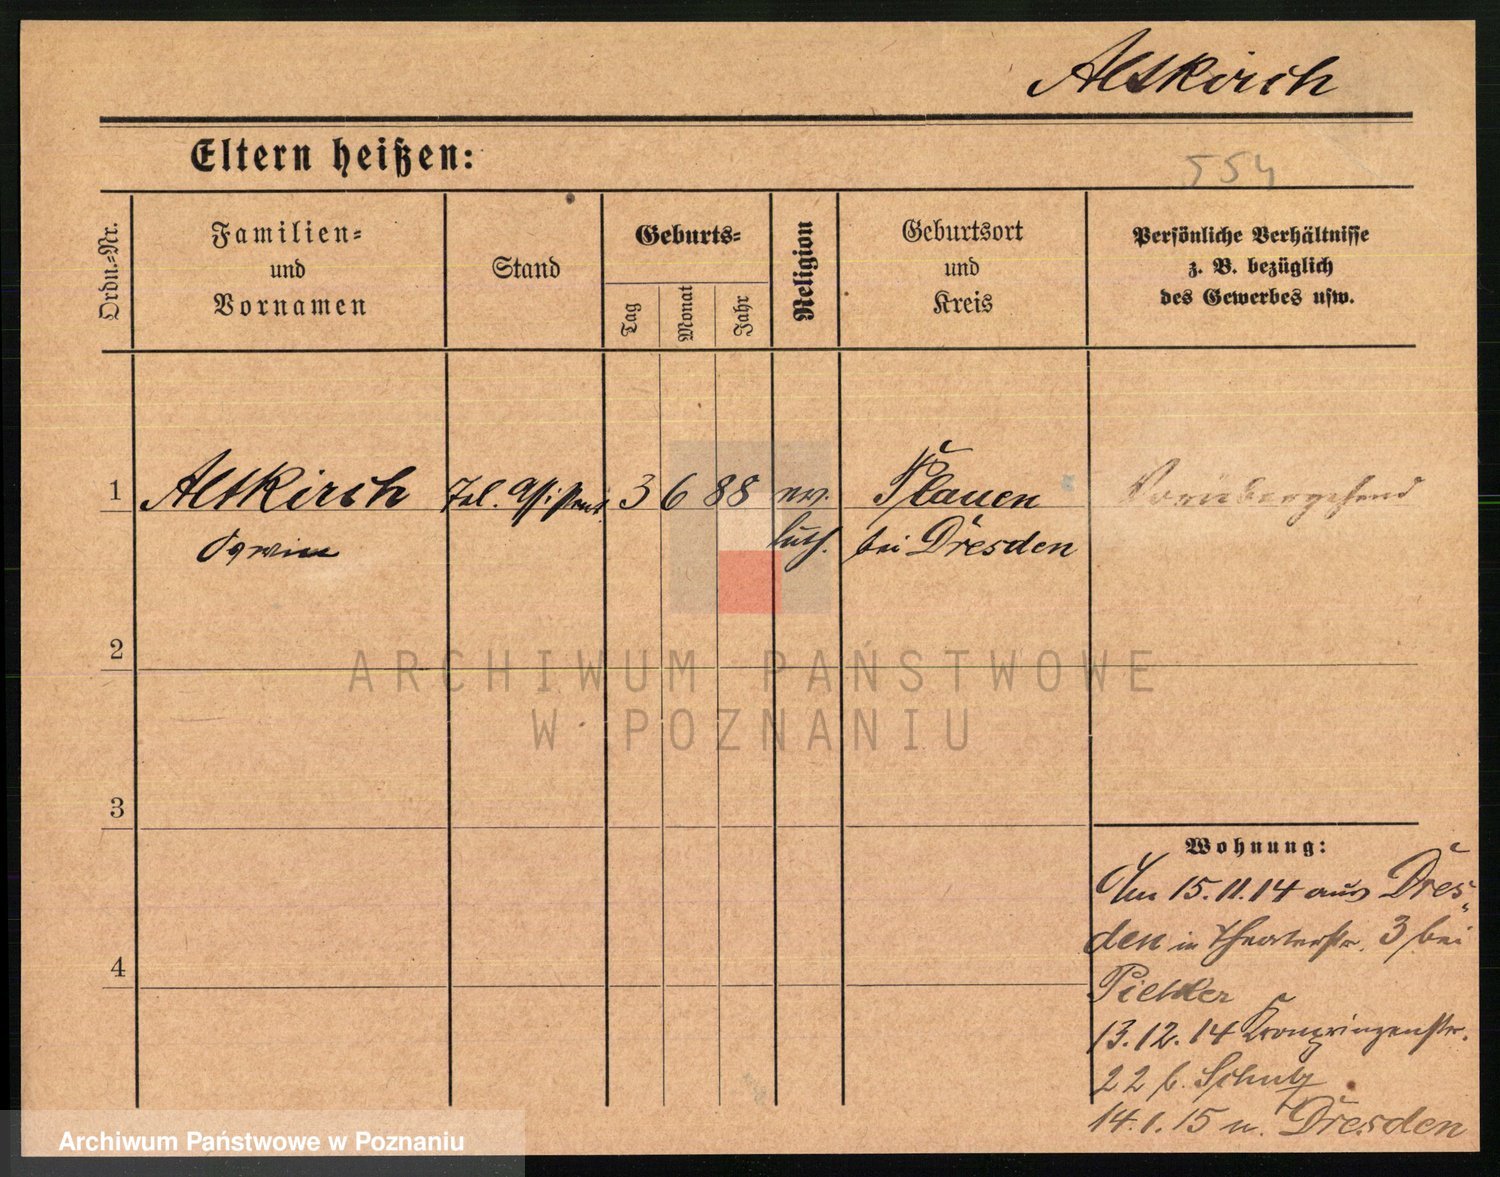 Altkirch
Eltern heißen:
554
Ordn.=Nr.
Familien=
und
Vornamen
Stand
Geburts=
Tag
Monat
Jahr
Religion
Geburtsort
und
Kreis
Persönliche Verhältnisse
z. B. bezüglich
des Gewerbes usw.
1
Altkirch
Tel. Assistent
3
6
88
ev.
luth.
Plauen
bei Dresden
Vorübergehend
2
3
4
Wohnung:
Am 15.11.14 aus Dres-
den in Theaterstr. 3 bei
Piehler
13.12.14 Kronprinzenstr.
22 b. Schulz
14.1.15 n. Dresden
ARCHIWUM PAŃSTWOWE
W POZNANIU
Archiwum Państwowe w Poznaniu